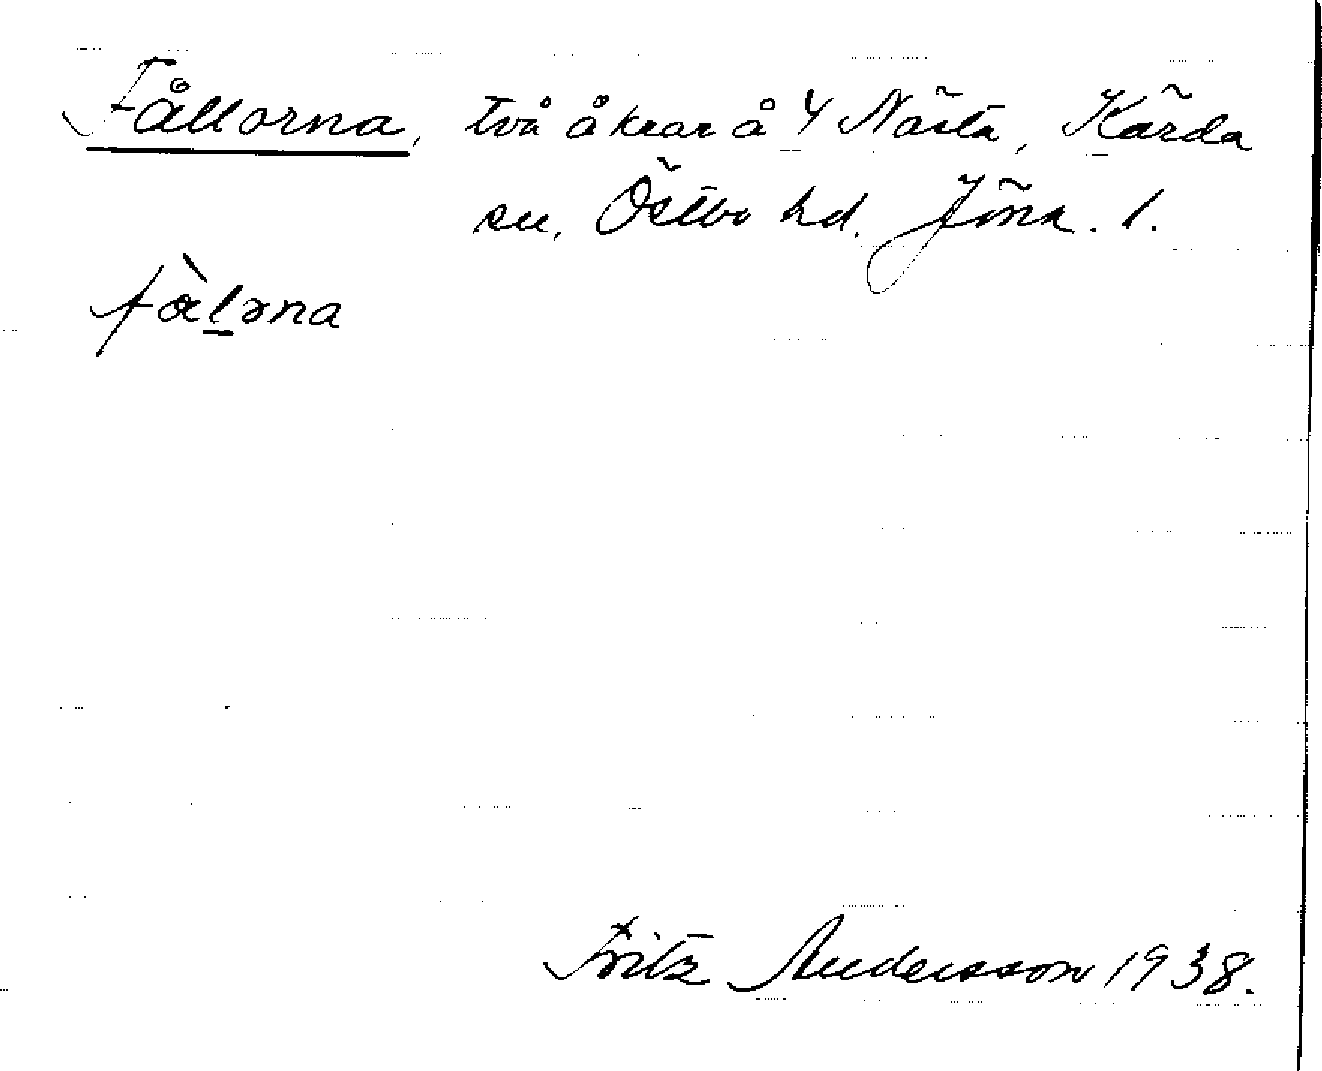 Fållorna, två åkrar å 4 Nästa, Kärda
sn, Östbo hd. Jönk. l.
fàlơrna
Fritz Andersson 1938.